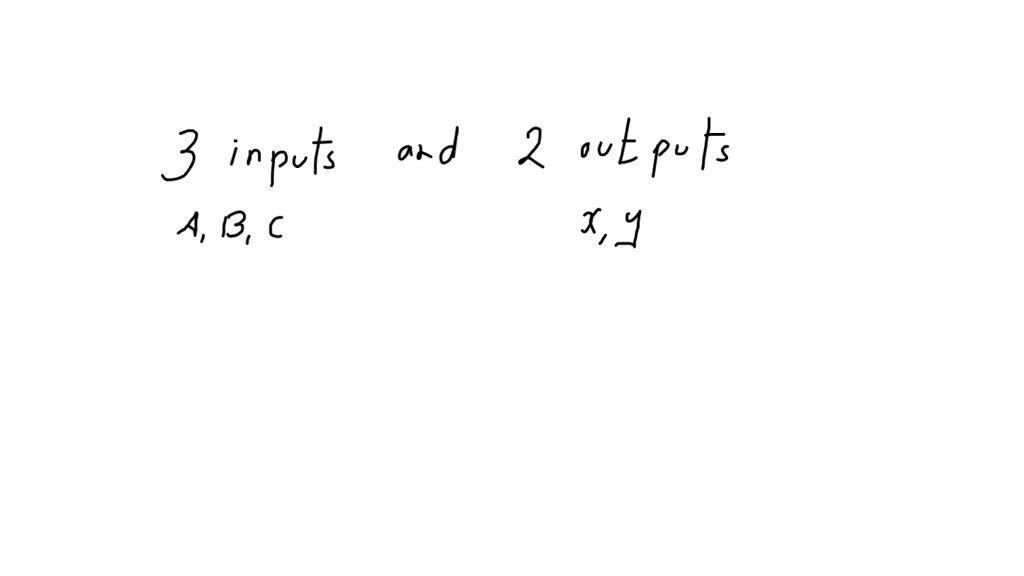 3 inputs and 2 outputs
A, B, C x, y